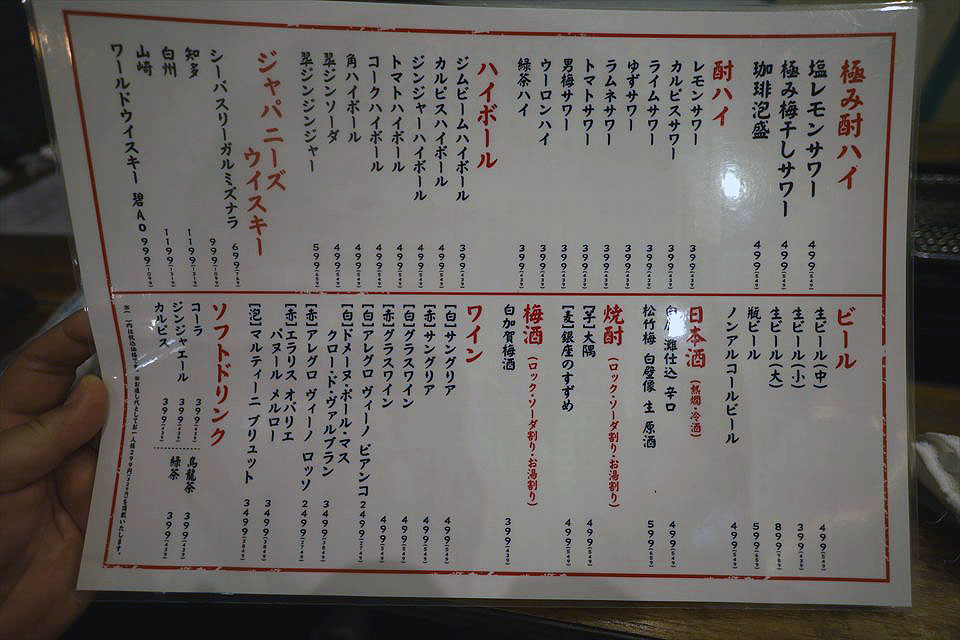 極み酎ハイ
塩レモンサワー 499(549)
極み梅干しサワー 499(549)
珈琲泡盛 499(549)
酎ハイ
レモンサワー 399(439)
カルピスサワー 399(439)
ライムサワー 399(439)
ゆずサワー 399(439)
ラムネサワー 399(439)
トマトサワー 399(439)
男梅サワー 399(439)
ウーロンハイ 399(439)
緑茶ハイ 399(439)
ハイボール
ジムビームハイボール 399(439)
カルピスハイボール 499(549)
ジンジャーハイボール 499(549)
トマトハイボール 499(549)
コークハイボール 499(549)
角ハイボール 499(549)
翠ジンソーダ 499(549)
翠ジンジンジャー 599(659)
ジャパニーズ
ウイスキー
シーバスリーガルミズナラ 699
知多 999
白州 1199
山崎 1199
ワールドウイスキー 碧Ao 999
ビール
生ビール(中) 499(549)
生ビール(小) 399(439)
生ビール(大) 899(989)
瓶ビール 599(659)
ノンアルコールビール 499(549)
日本酒(熱燗・冷酒)
灘仕込 辛口 499(549)
松竹梅 白壁像 生 原酒 599(659)
焼酎(ロック・ソーダ割り・お湯割り)
[芋]大隅 499(549)
[麦]銀座のすずめ 499(549)
梅酒(ロック・ソーダ割り・お湯割り)
白加賀梅酒 399(439)
ワイン
[白]サングリア 499(549)
[赤]サングリア 499(549)
[白]グラスワイン 499(549)
[赤]グラスワイン 499(549)
[白]アレグロ ヴィーノ ビアンコ 2499(2749)
[白]ドメーヌ・ポール・マス
クロード・ヴァルブラン 3499(3849)
[赤]アレグロ ヴィーノ ロッソ 2499(2749)
[赤]エラリス オバリエ
パヌール メルロー 3499(3849)
[泡]マルティーニ ブリュット 3499(3849)
ソフトドリンク
コーラ 399(439)
ジンジャエール 399(439)
カルピス 399(439)
烏龍茶 399(439)
緑茶 399(439)
※( )内は税込価格です。※お通し代としてお一人様299円(329円)を頂戴いたします。